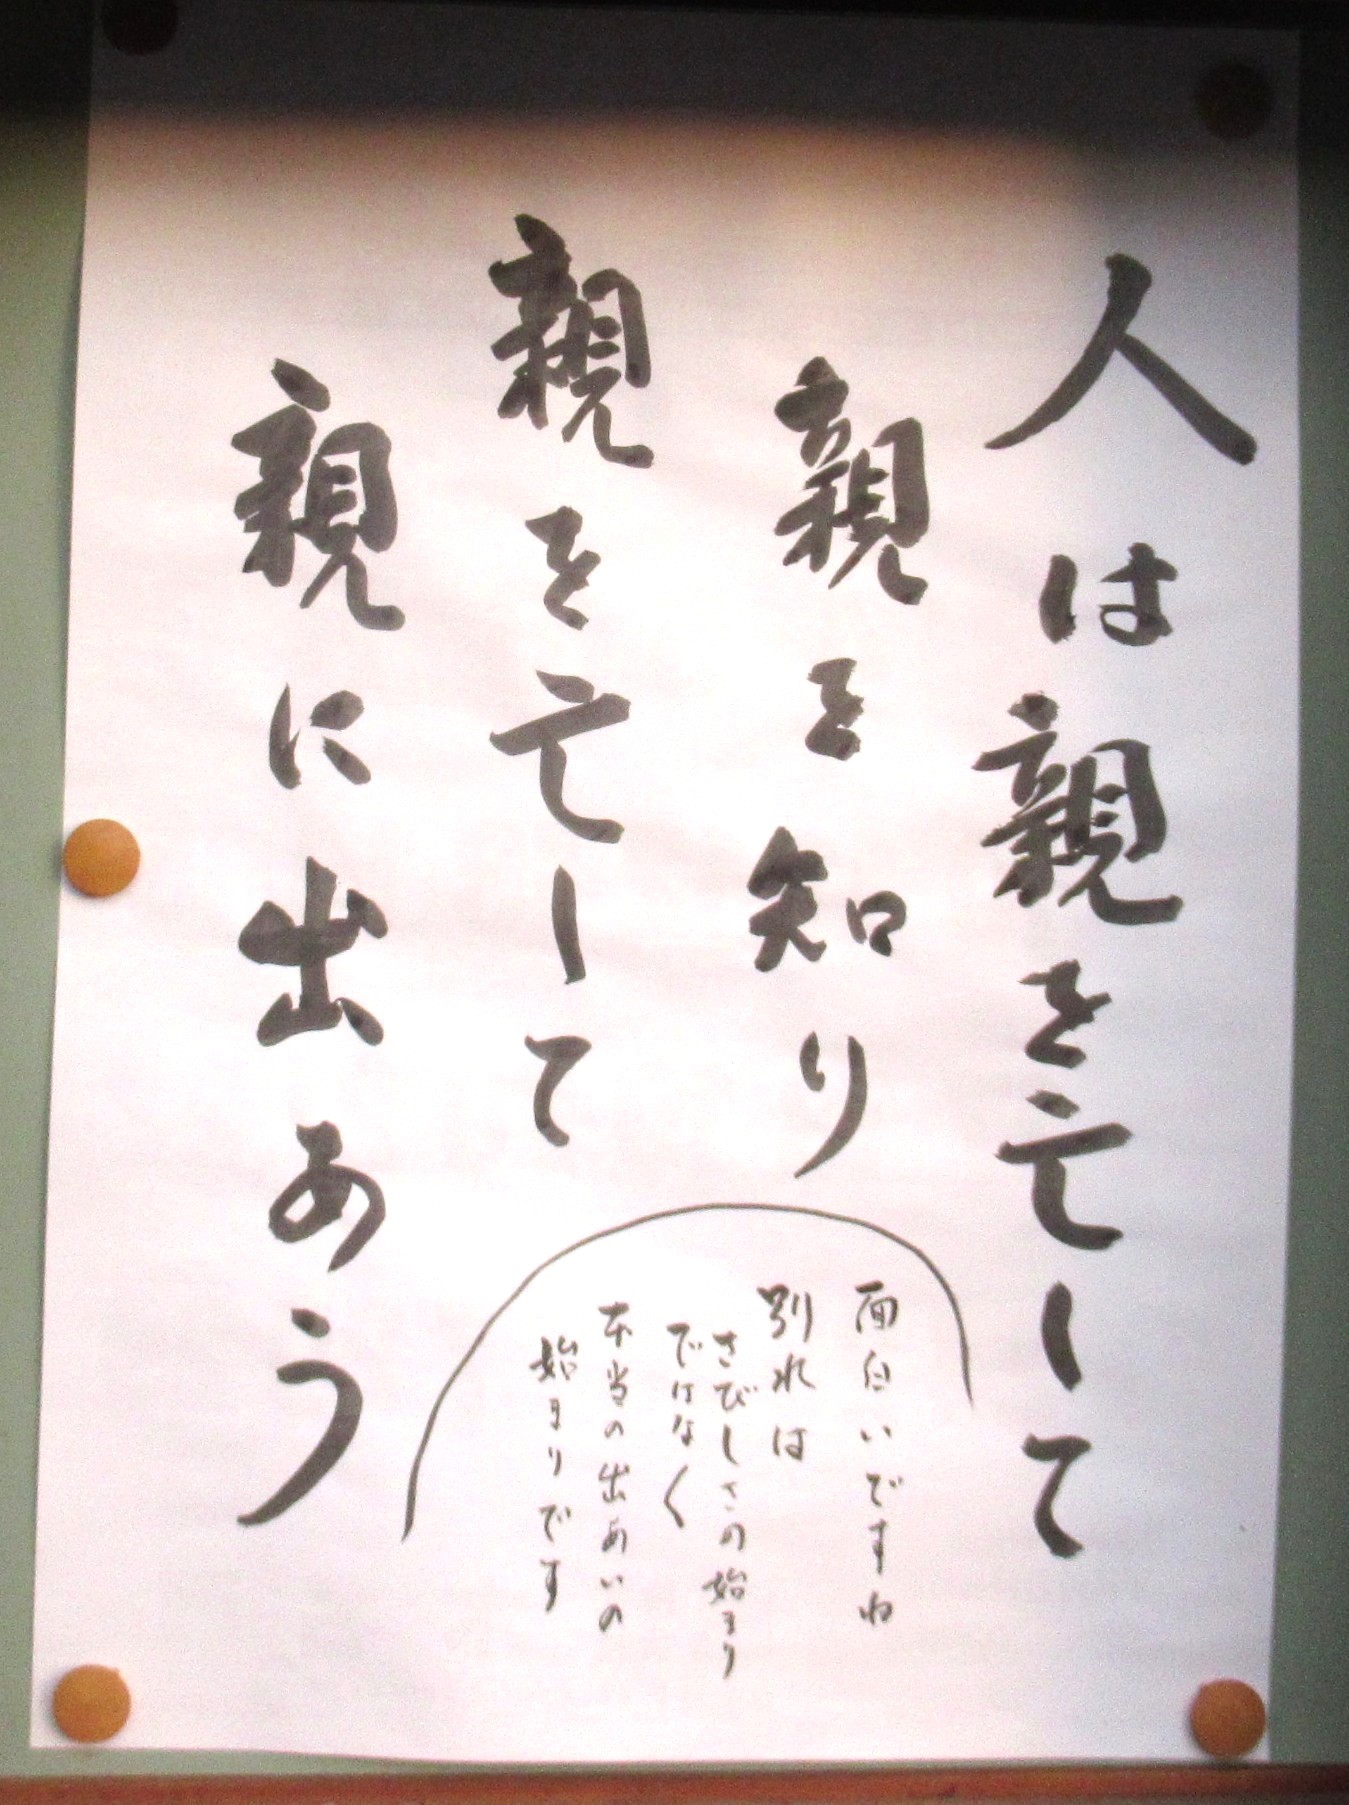 人は親を亡して
親を知り
親を亡して
親に出あう
面白いですね
別れは
さびしさの始まり
ではなく
本当の出あいの
始まりです